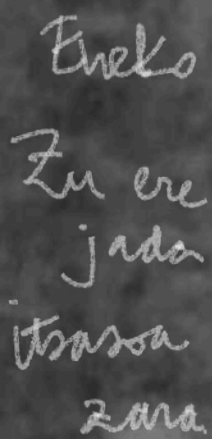 Eneko
Zu ere
jada
itsasoa
zara